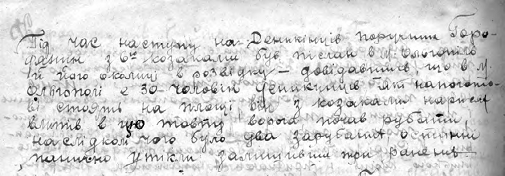 Під час наступу на Деникінців поручник Горо-
дянин з 6ма козаками був післан в м. Ольгопіль
й його околиці в розвідку — довідавшись що в м.
Ольгополі є 30 чоловік деникінців які напогото-
ві стоять на площі він з козаками наскочив
влетів в цю товпу ворога почав рубати,
наслідком чого було два зарубаних останні
панично утікли залишивши три ранених